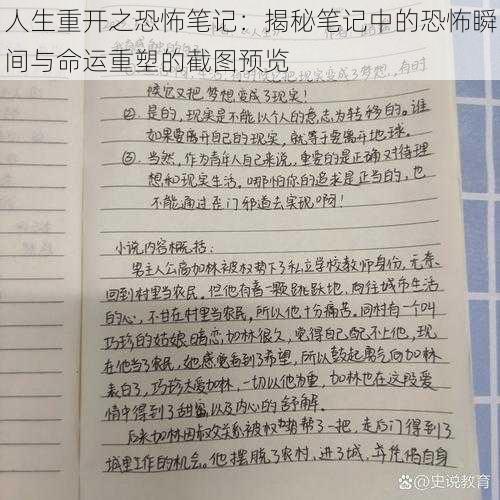 人生重开之恐怖笔记：揭秘笔记中的恐怖瞬
间与命运重塑的截图预览
候它又把梦想变成了现实！
② 是的，现实是不能以个人的意志为转移的。谁
如果要离开自己的现实，就等于要离开地球。
③ 当然，作为青年人自己来说，重要的是正确对待理
想和现实生活。哪怕你的追求是正当的，也
不能通过歪门邪道去实现啊！
小说内容概括：
男主人公高加林被权势下了私立学校教师身份，无奈
回到村里当农民。但他有着一颗跳跃地，向往城市生活
的心，不甘在村里当农民，所以他十分痛苦。同村有一个叫
巧珍的姑娘暗恋加林很久，觉得自己配不上他，现
在他当了农民，她感觉看到了希望，所以鼓起勇气向加林
表白了，巧珍太爱加林，一切以他为重，加林也在这段爱
情中得到了甜蜜以及内心的舒解。
后来加林因叔叔关系被权势帮了一把，走后门得到了
城里工作的机会。他摆脱了农村，进了城，并凭借自身
@史说教育